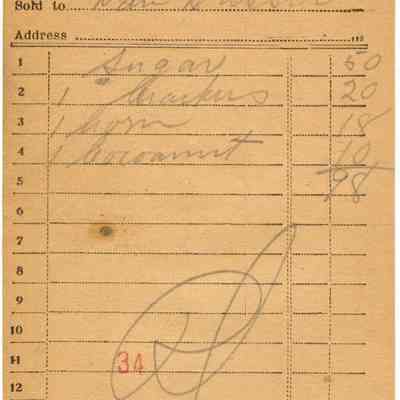 Sold to
Address
1 Sugar 50
2 1 " Crackers 20
3 1 Corn 18
4 1 Cocoanut 10
5 98
6
7
8
9
10
11 34
12